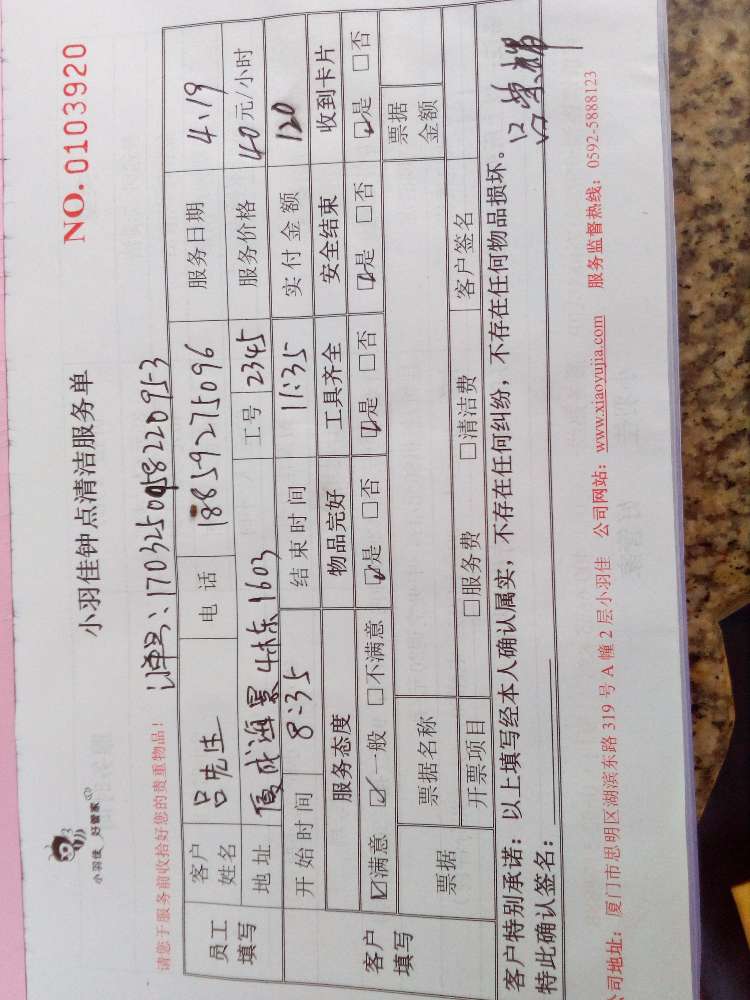 小羽佳 好管家
小羽佳钟点清洁服务单
NO. 0103920
请您于服务前收拾好您的贵重物品!
员工填写
客户姓名 吕先生 电话 18859275096 服务日期 4.19
地址 1603 工号 2345 服务价格 40元/小时
开始时间 8:35 结束时间 11:35 实付金额 120
客户填写
服务态度 物品完好 工具齐全 安全结束 收到卡片
☑满意 ☑一般 □不满意 ☑是 □否 ☑是 □否 ☑是 □否 ☑是 □否
票据 票据名称 票据金额
开票项目 □服务费 □清洁费 客户签名
客户特别承诺:以上填写经本人确认属实,不存在任何纠纷,不存在任何物品损坏。
特此确认签名:
公司地址:厦门市思明区湖滨东路 319 号 A 幢 2 层小羽佳 公司网站:www.xiaoyujia.com 服务监督热线:0592-5888123